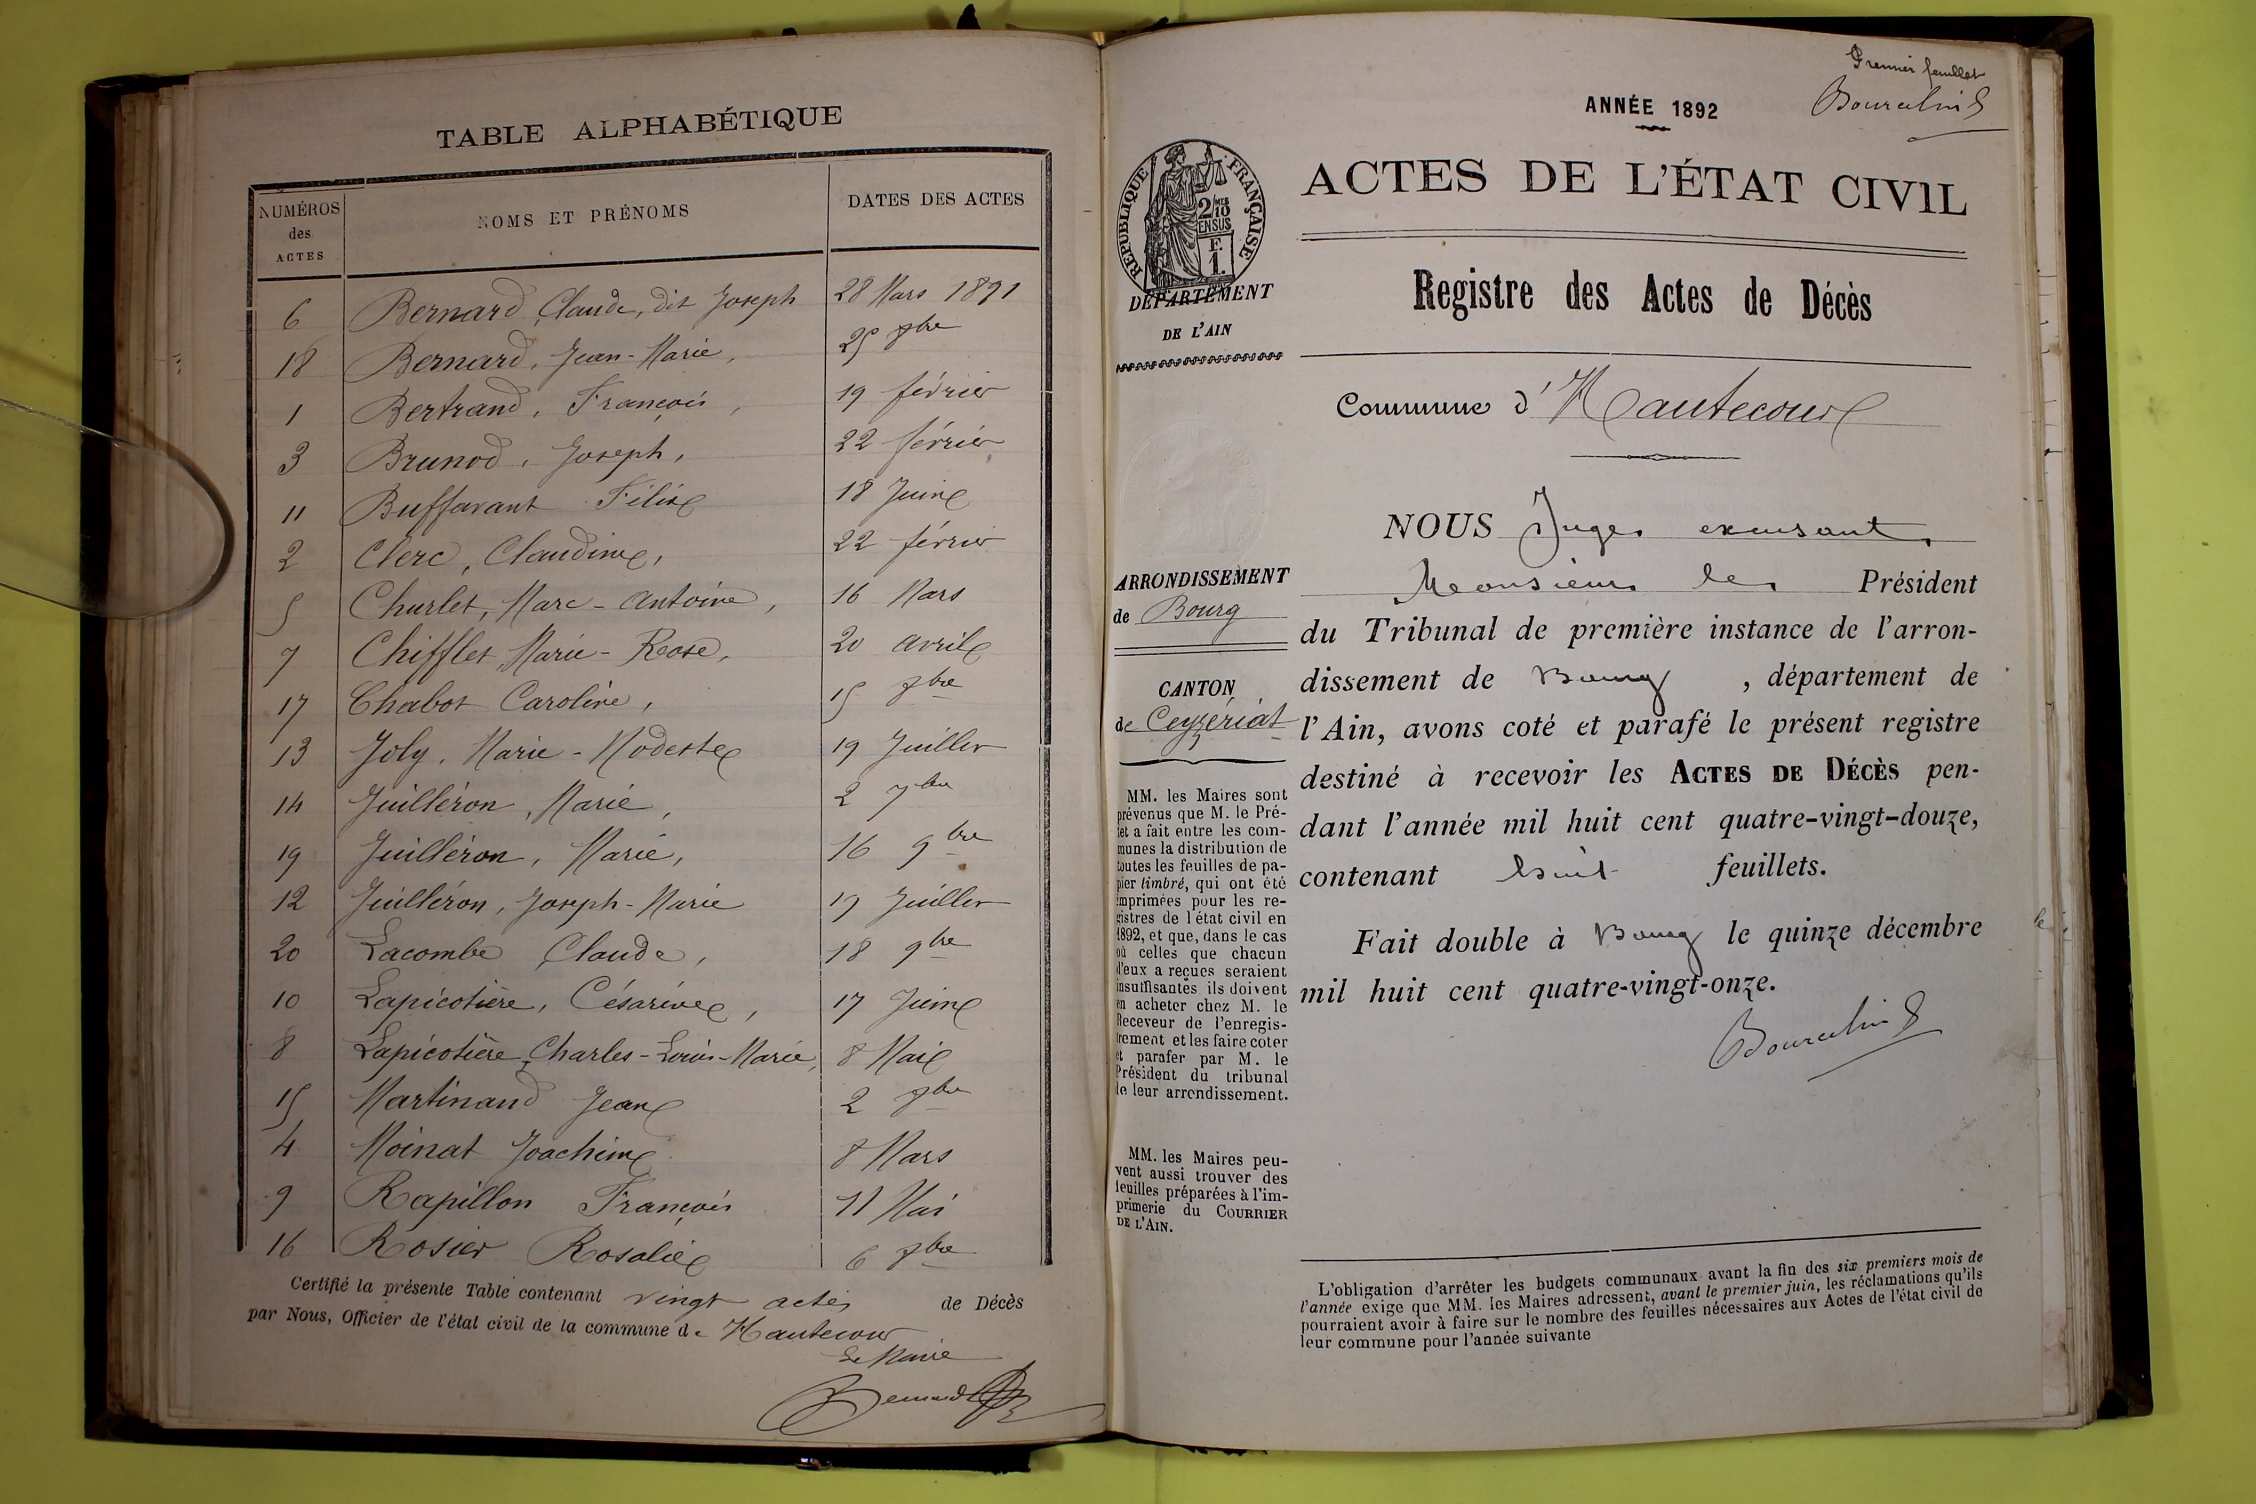 TABLE ALPHABÉTIQUE
NUMÉROS des ACTES
NOMS ET PRÉNOMS
DATES DES ACTES
6 Bernard Claude, dit Joseph 28 Mars 1891
18 Bernard, Jean-Marie, 25 8bre
1 Bertrand, François, 19 février
3 Brunod, Joseph, 22 février
11 Buffavant Félix 18 Juin
2 Clerc, Claudine, 22 février
5 Churlet, Marc-Antoine, 16 Mars
7 Chifflet, Marie-Rose, 20 avril
17 Chabot Caroline, 15 8bre
13 Joly, Marie-Modeste 19 Juillet
14 Juilléron, Marie, 2 7bre
19 Juilléron, Marie, 16 9bre
12 Juilléron, Joseph-Marie 19 Juillet
20 Lacombe Claude, 18 9bre
10 Lapicotière, Césarine, 17 Juin
8 Lapicotière, Charles-Louis-Marie, 8 Mai
15 Martinand Jean 2 8bre
4 Moinat Joachim 8 Mars
9 Rapillon François 11 Mai
16 Rosier Rosalie 6 8bre
Certifié la présente Table contenant vingt actes de Décès
par Nous, Officier de l'état civil de la commune de Hautecour
Le Maire
Bernard
Premier feuillet
ANNÉE 1892
RÉPUBLIQUE FRANÇAISE
2/10 EN SUS
F. 1.
ACTES DE L'ÉTAT CIVIL
DÉPARTEMENT
DE L'AIN
Registre des Actes de Décès
Commune d'Hautecour
ARRONDISSEMENT
de Bourg
CANTON
de Ceyzériat
MM. les Maires sont
prévenus que M. le Pré-
fet a fait entre les com-
munes la distribution de
toutes les feuilles de pa-
pier timbré, qui ont été
imprimées pour les re-
gistres de l'état civil en
1892, et que, dans le cas
où celles que chacun
d'eux a reçues seraient
insuffisantes ils doivent
en acheter chez M. le
Receveur de l'enregis-
trement et les faire coter
et parafer par M. le
Président du tribunal
de leur arrondissement.
MM. les Maires peu-
vent aussi trouver des
feuilles préparées à l'im-
primerie du COURRIER
DE L'AIN.
NOUS Juge excusant
Monsieur le Président
du Tribunal de première instance de l'arron-
dissement de Bourg, département de
l'Ain, avons coté et parafé le présent registre
destiné à recevoir les ACTES DE DÉCÈS pen-
dant l'année mil huit cent quatre-vingt-douze,
contenant huit feuillets.
Fait double à Bourg le quinze décembre
mil huit cent quatre-vingt-onze.
L'obligation d'arrêter les budgets communaux avant la fin des six premiers mois de
l'année exige que MM. les Maires adressent, avant le premier juin, les réclamations qu'ils
pourraient avoir à faire sur le nombre des feuilles nécessaires aux Actes de l'état civil de
leur commune pour l'année suivante